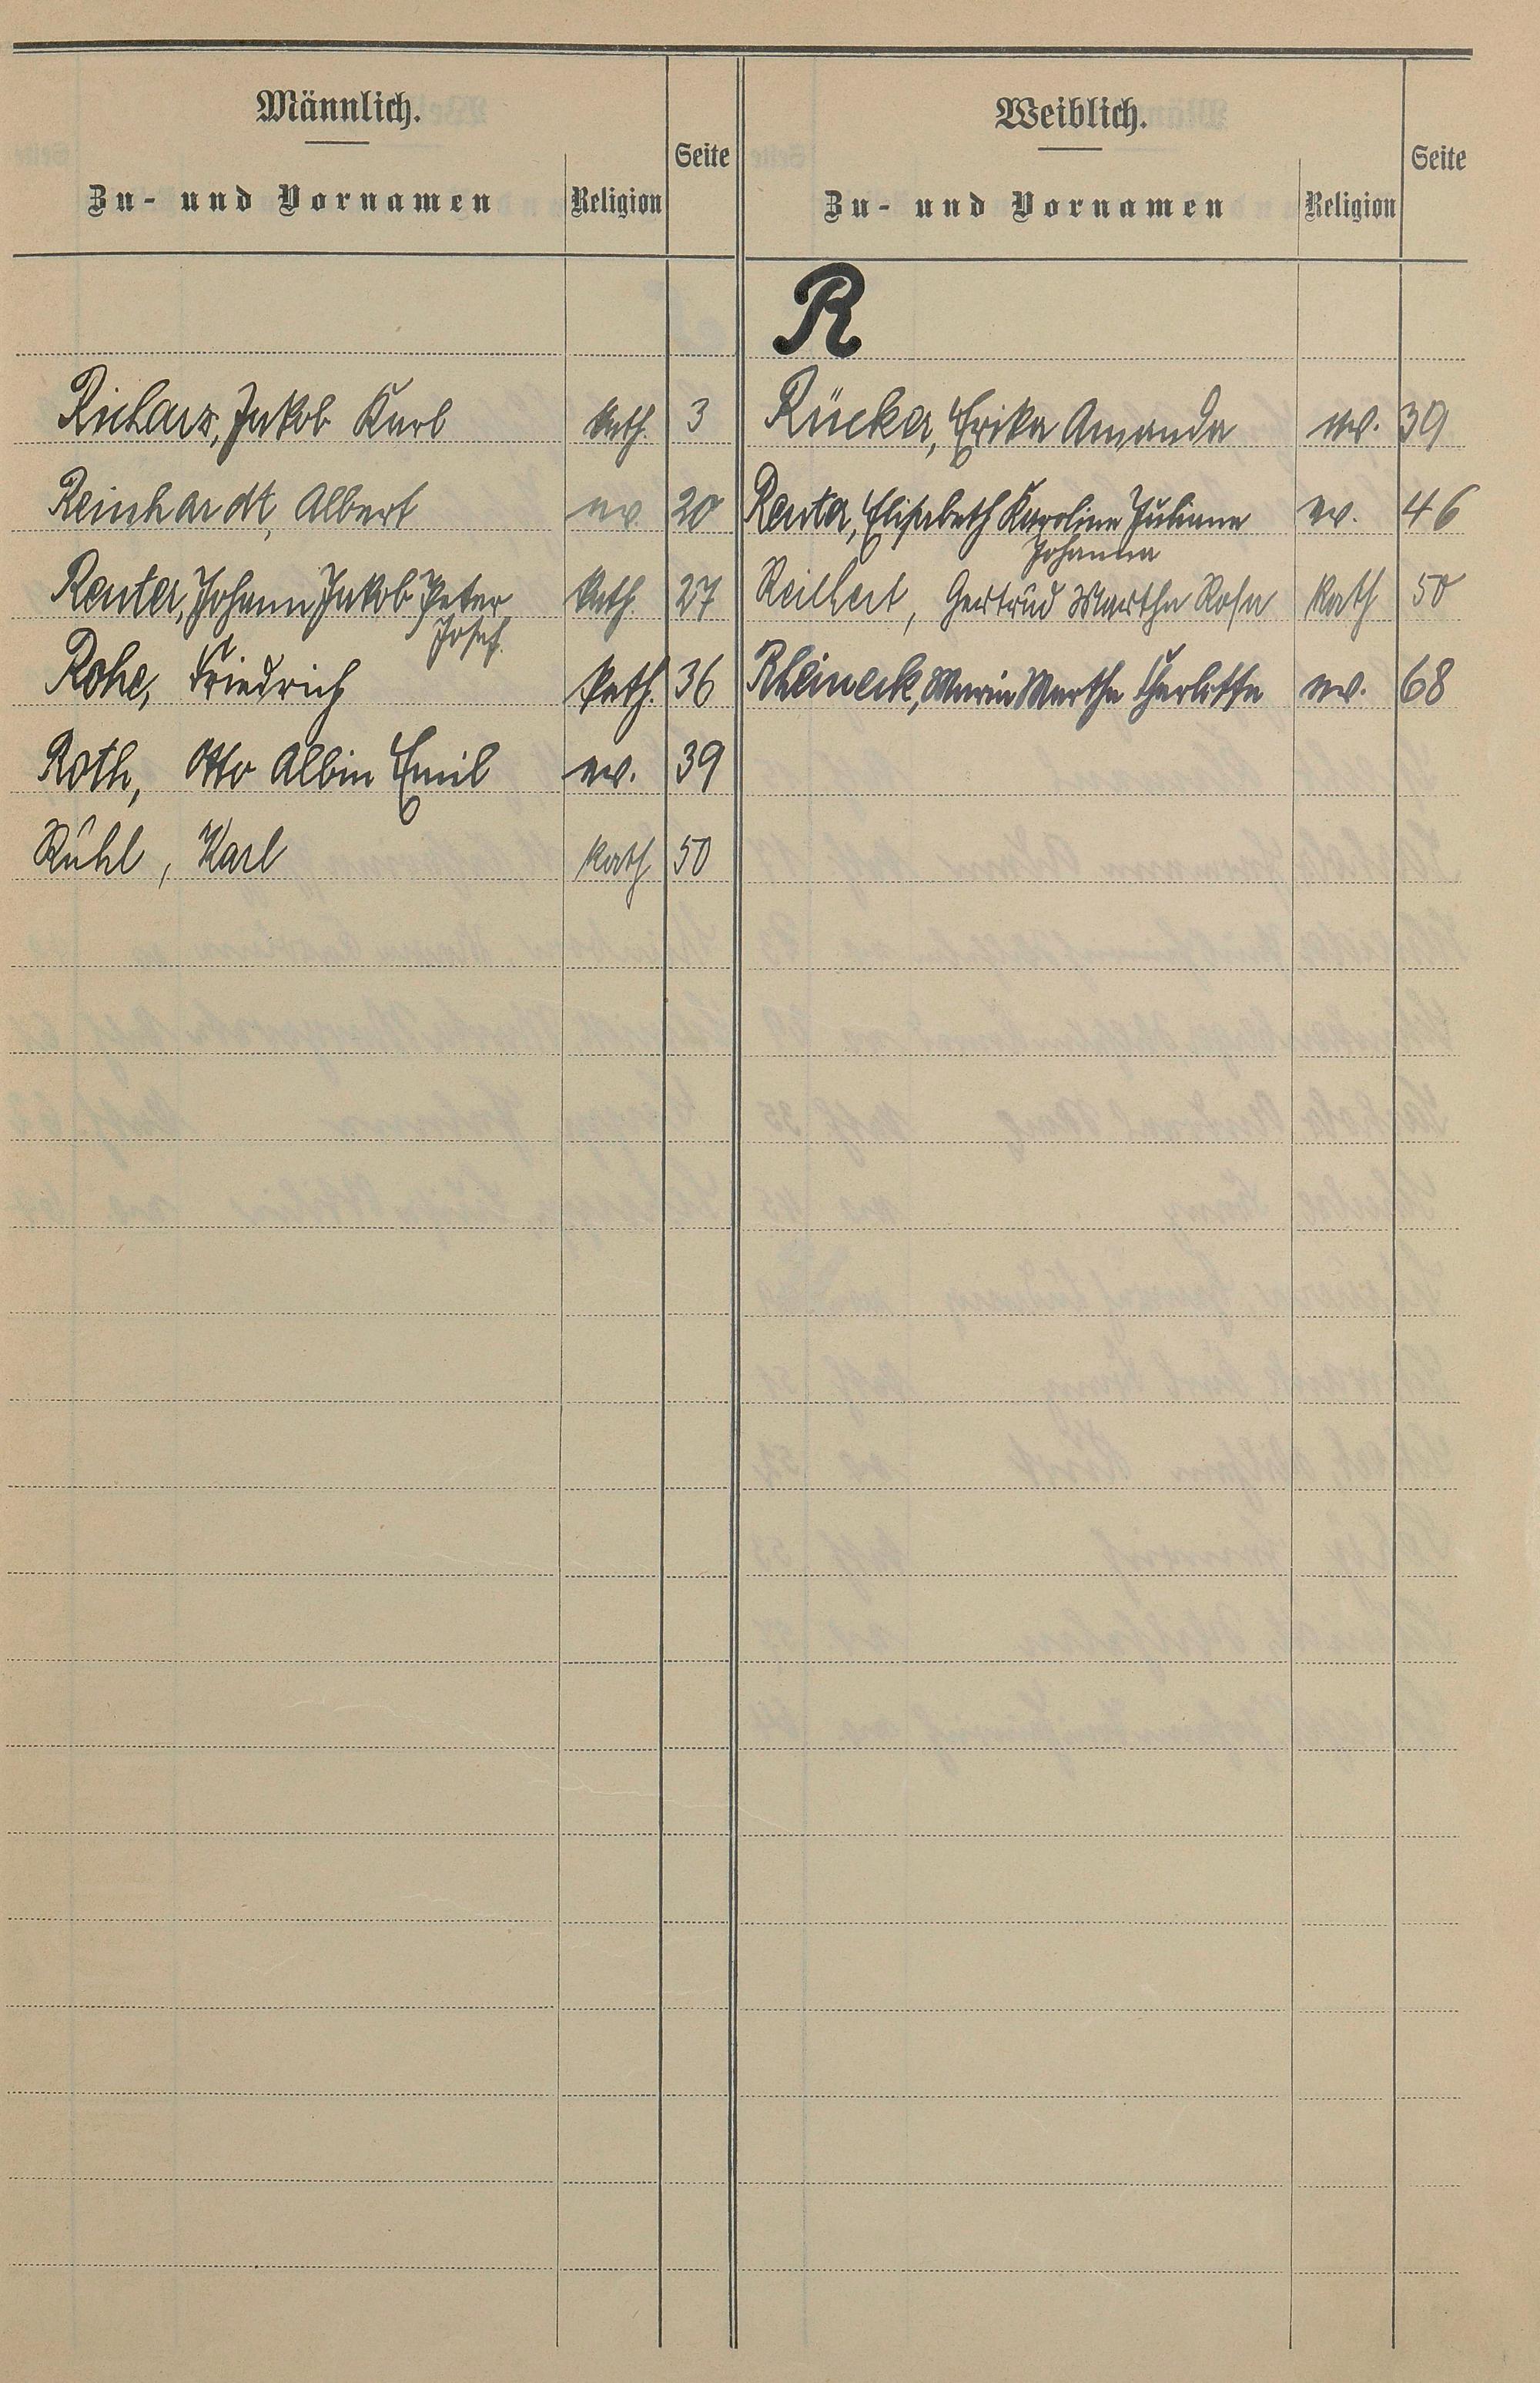 Männlich.
Zu- und Vornamen Religion Seite
Weiblich.
Zu- und Vornamen Religion Seite
R
Richarz, Jakob Karl kath. 3
Rücker, Erika Amanda ev. 39
Reinhardt, Albert ev. 20
Reuter, Elisabeth Karoline Juliane ev. 46
Johanna
Reuter, Johann Jakob Peter kath. 27
Josef.
Reichert, Gertrud Martha Rosa kath 50
Rohe, Friedrich kath. 36
Rheineck, Maria Martha Charlotte ev. 68
Roth, Otto Albin Emil ev. 39
Rühl, Karl kath 50